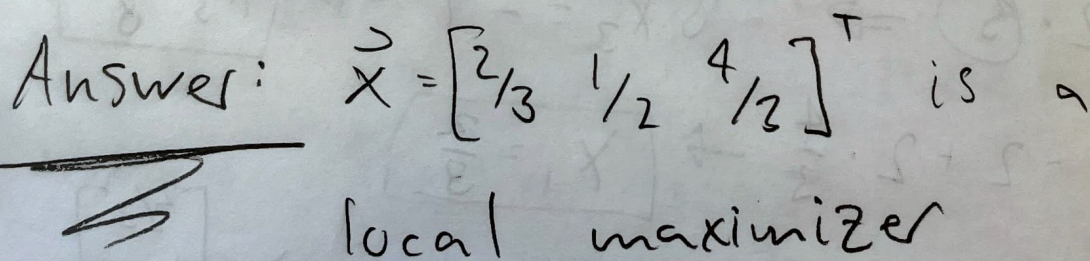 Answer: x⃗ = [2/3 1/2 4/3]ᵀ is a
local maximizer